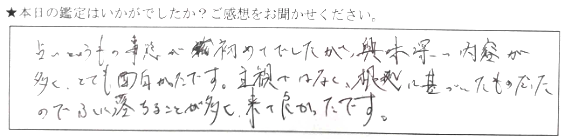 ★本日の鑑定はいかがでしたか？ご感想をお聞かせください。
占いというもの事態が初めてでしたが、興味深い内容が
多く、とても面白かったです。主観ではなく、根拠に基づいたものだった
のでふに落ちることが多く、来て良かったです。